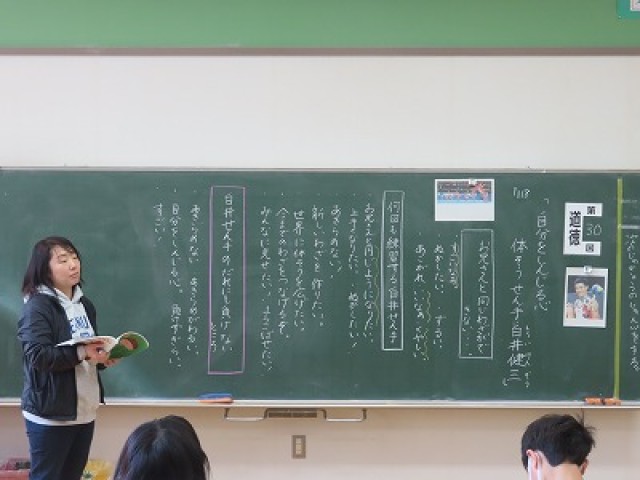 第30回
道徳
P118
「自分をしんじる心
体そうせん手 白井健三」
お兄さんと同じわざができない。
すごいなあ。
ぬかしたい。 ずるい。
あこがれ、いいなあ、くやしい。
何回も練習する白井せん手
お兄さんと同じようになりたい。
上手くなりたい。 超したい！
あきらめない！
新しいわざを作りたい。
世界に体そうを広げたい。
今までのわざをつなげるぞ。
みんなに見せたい。 よろこばせたい！
白井せん手のだれにも負けないところ
・あきらめない、あきらめがわるい。
・自分をしんじる心。 負けずぎらい。
・すごい